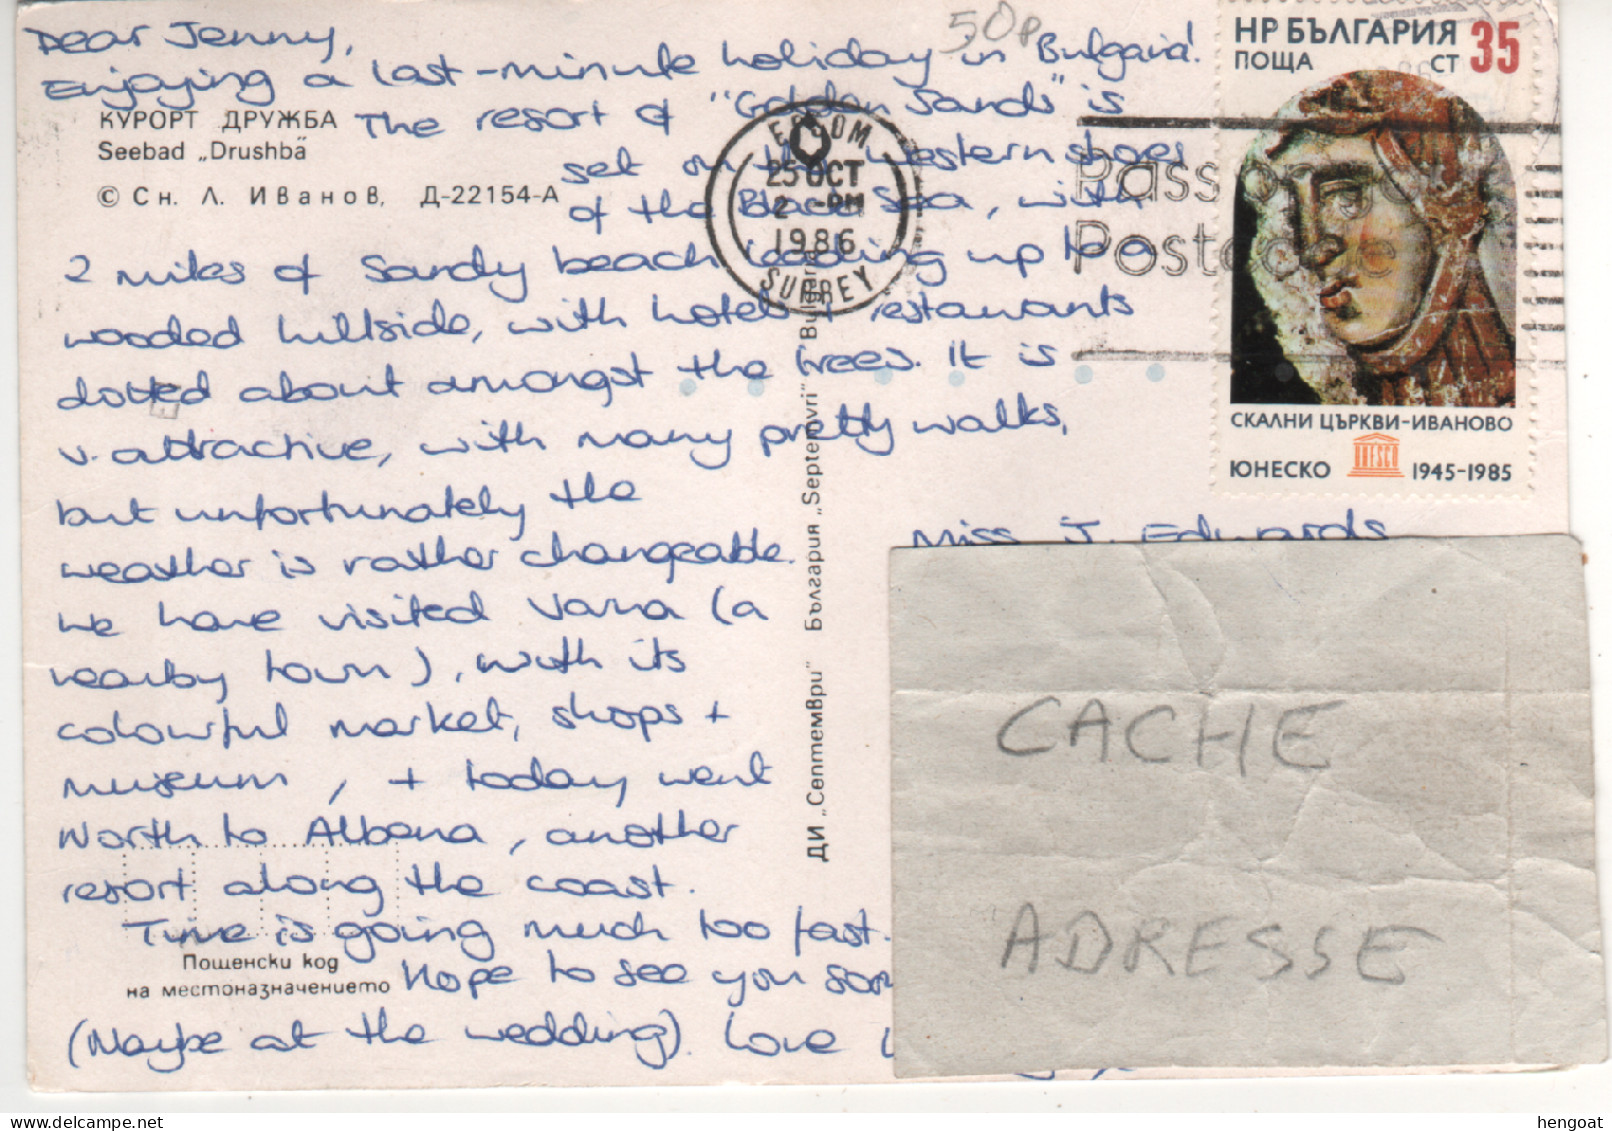 Dear Jenny,
Enjoying a last-minute holiday in Bulgaria!
The resort of "Golden Sands" is
set on the western shoes
of the Black Sea, with
2 miles of sandy beach leading up to a
wooded hillside, with hotels + restaurants
dotted about amongst the trees. It is
v. attractive, with many pretty walks,
but unfortunately the
weather is rather changeable.
We have visited Varna (a
nearby town), with its
colourful market, shops +
museum, + today went
North to Albena, another
resort along the coast.
Time is going much too fast.
Hope to see you
(Maybe at the wedding). Love
КУРОРТ ДРУЖБА
Seebad „Drushba"
© Сн. Л. Иванов, Д-22154-А
Пощенски код
на местоназначението
ДИ „Септември" България „Septemvri"
50p
EPSOM
25 OCT
2 -PM
1986
SURREY
НР БЪЛГАРИЯ 35
ПОЩА СТ
СКАЛНИ ЦЪРКВИ-ИВАНОВО
ЮНЕСКО UNESCO 1945-1985
Miss J. Edwards
CACHE
ADRESSE
hengoat